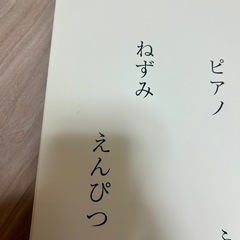 ピアノ
ねずみ
えんぴつ